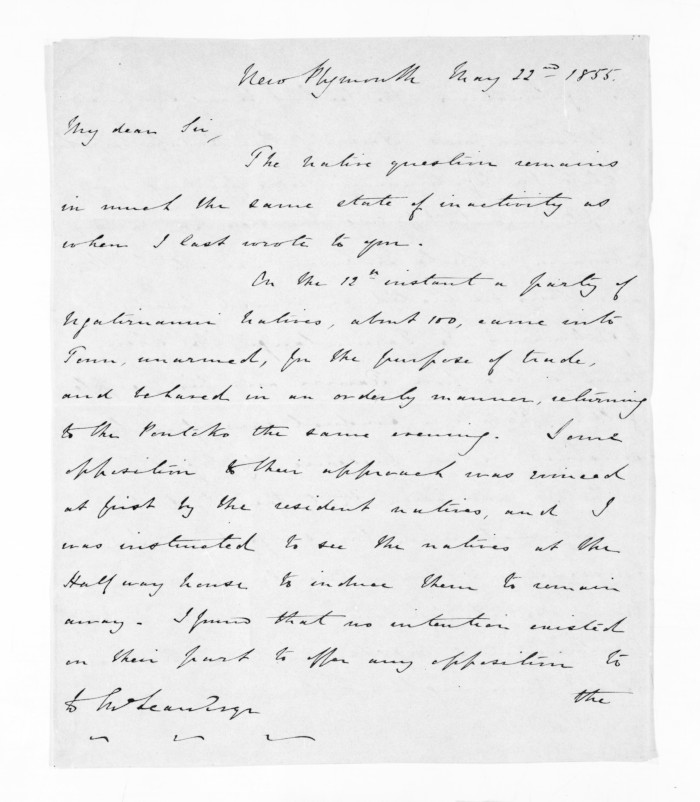 New Plymouth May 22nd 1855.
My dear Sir,
The native question remains
in much the same state of inactivity as
when I last wrote to you.
On the 12th instant a party of
Ngatiruanui Natives, about 100, came into
Town, unarmed, for the purpose of trade,
and behaved in an orderly manner, returning
to the the same evening. Some
opposition to their approach was evinced
at first by the resident natives, and I
was instructed to see the natives at the
Halfway house to induce them to remain
away. I found that no intention existed
on their part to offer any opposition to
the
D McLean Esqr